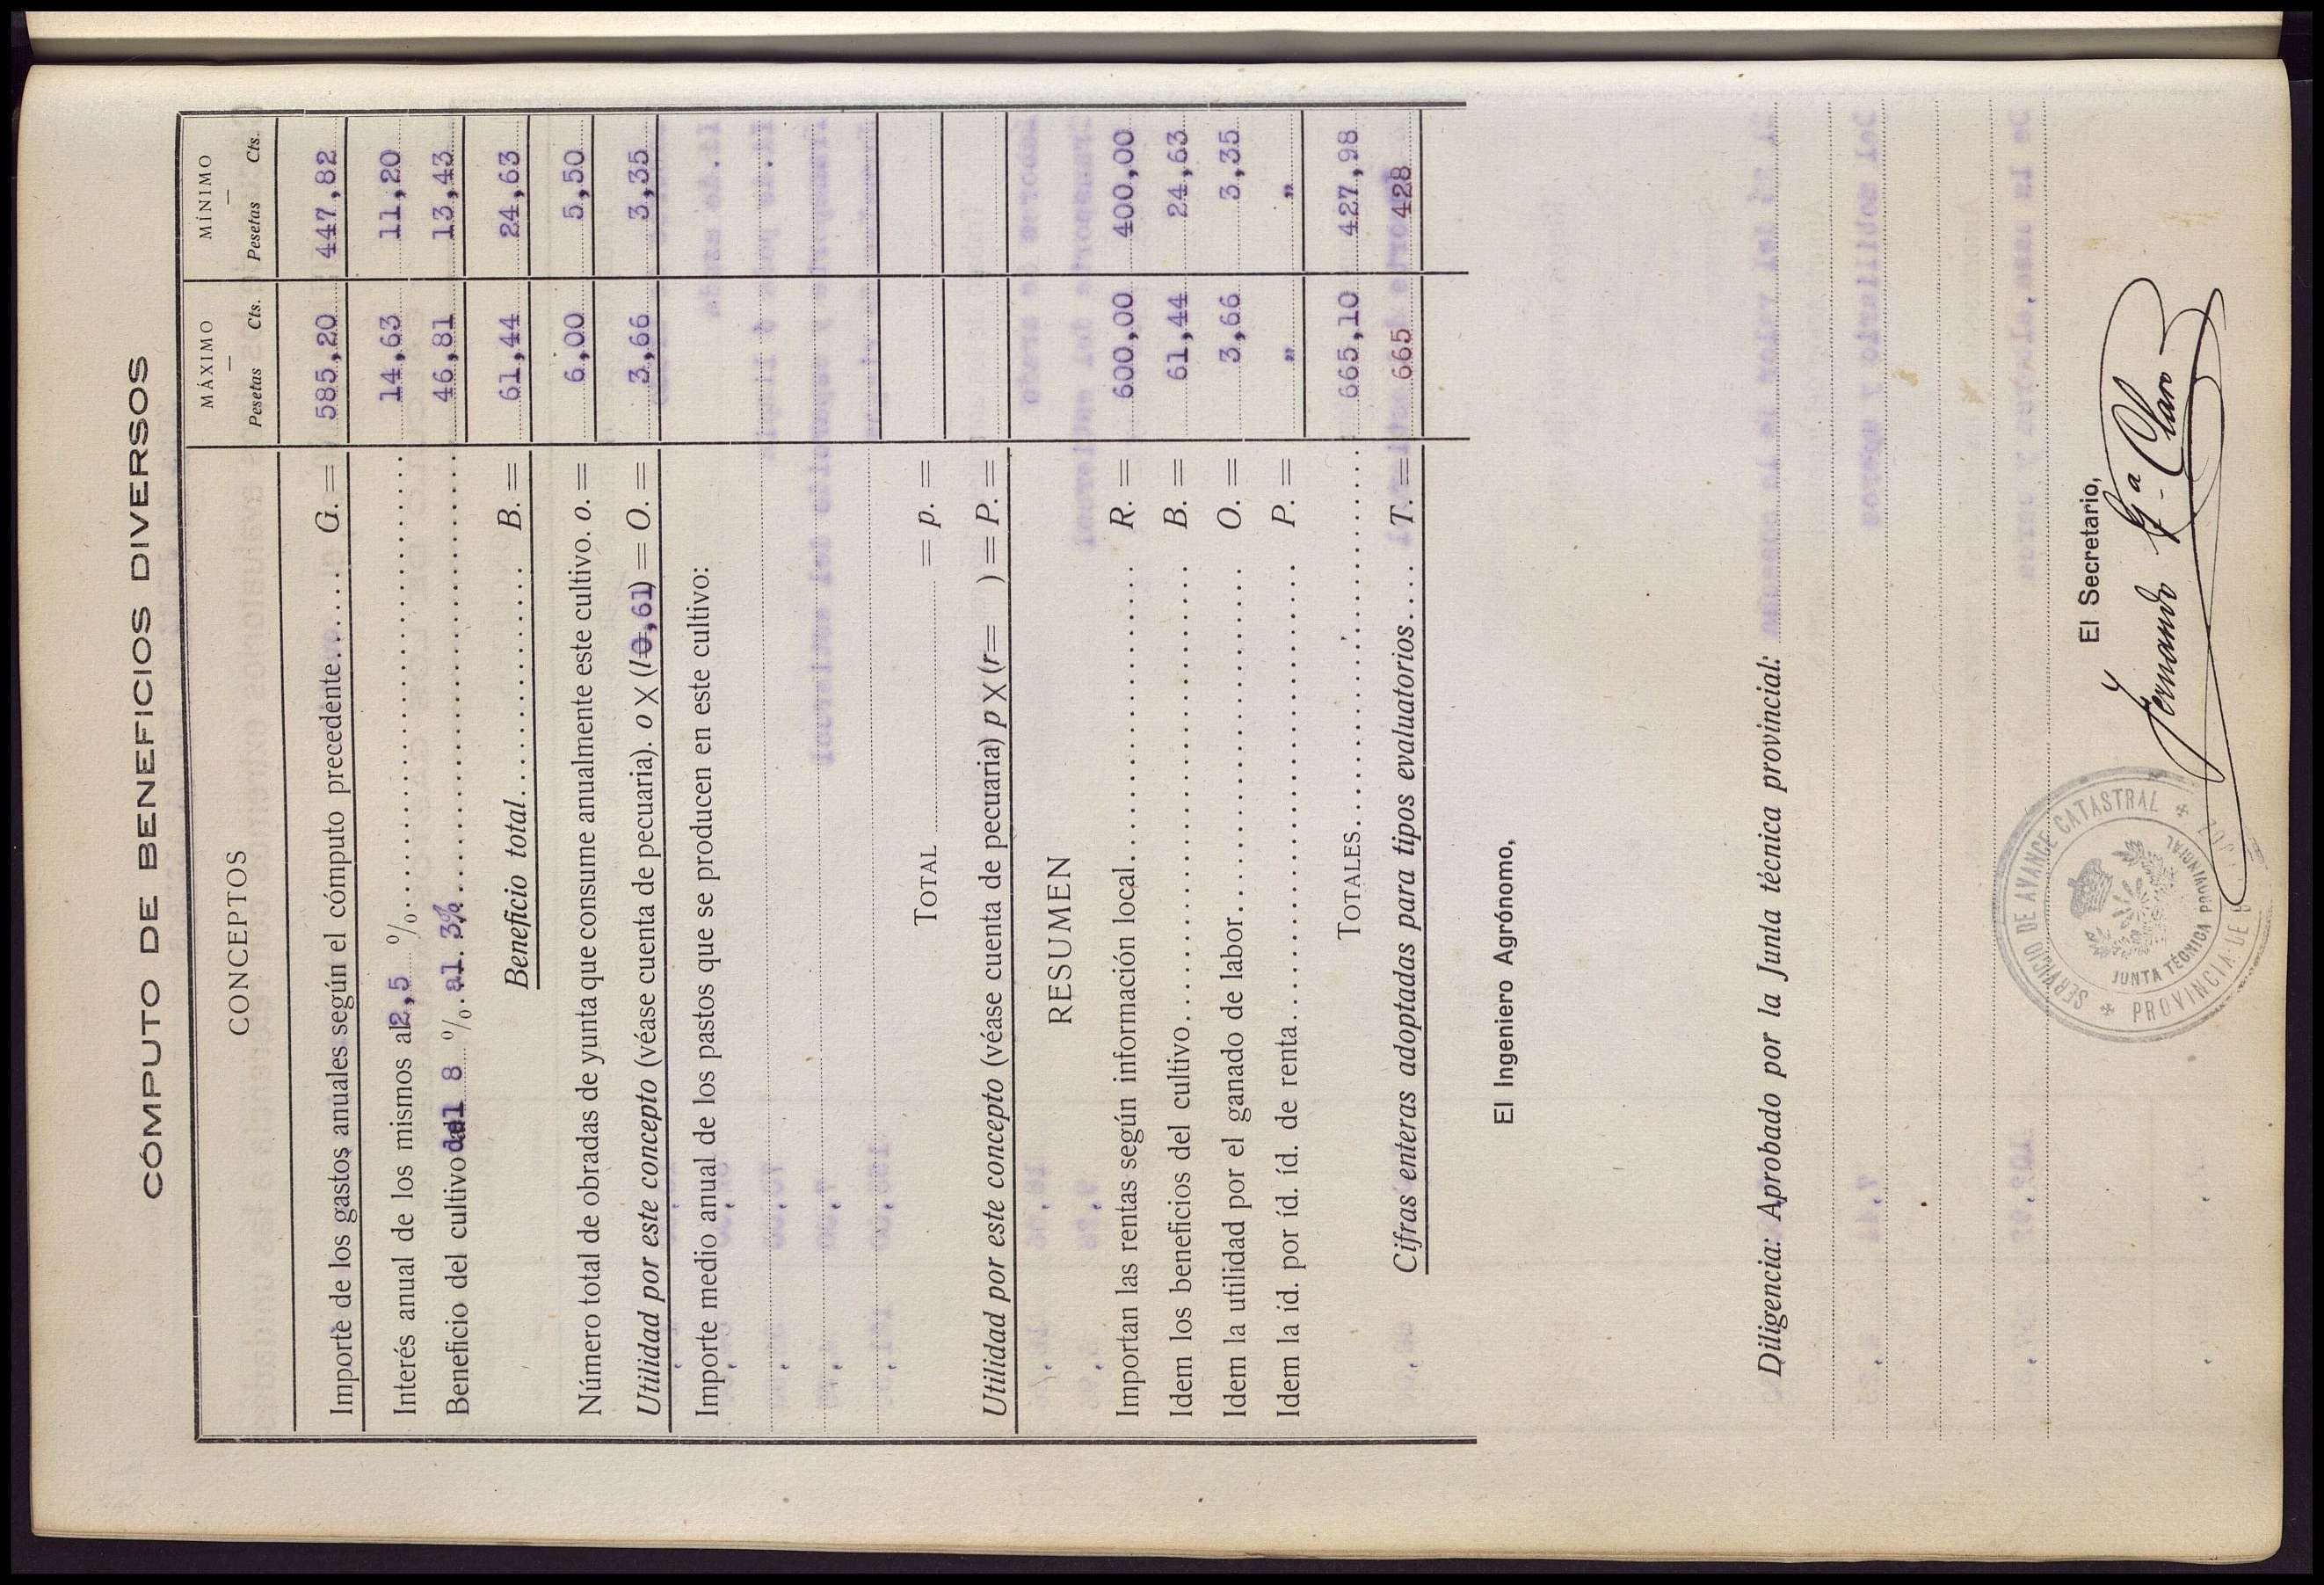 CÓMPUTO DE BENEFICIOS DIVERSOS
CONCEPTOS MÁXIMO MÍNIMO
Pesetas Cts. Pesetas Cts.
Importe de los gastos anuales según el cómputo precedente....... G. = 585,20 447,82
Interés anual de los mismos al 2,5 %. 14,63 11,20
Beneficio del cultivo del 8 %. al. 3% 46,81 13,43
Beneficio total B. = 61,44 24,63
Número total de obradas de yunta que consume anualmente este cultivo. o. = 6,00 5,50
Utilidad por este concepto (véase cuenta de pecuaria). o × (l 0,61) = O. = 3,66 3,35
Importe medio anual de los pastos que se producen en este cultivo:
TOTAL = p. =
Utilidad por este concepto (véase cuenta de pecuaria) p × (r= ) = P. =
RESUMEN
Importan las rentas según información local R. = 600,00 400,00
Idem los beneficios del cultivo B. = 61,44 24,63
Idem la utilidad por el ganado de labor O. = 3,66 3,35
Idem la íd. por íd. íd. de renta P. = " "
TOTALES 665,10 427,98
Cifras enteras adoptadas para tipos evaluatorios T. = 665 428
El Ingeniero Agrónomo,
Diligencia: Aprobado por la Junta técnica provincial:
El Secretario,
Fernando Gª Claro
SERVICIO DE AVANCE CATASTRAL
JUNTA TÉCNICA PROVINCIAL
PROVINCIA DE